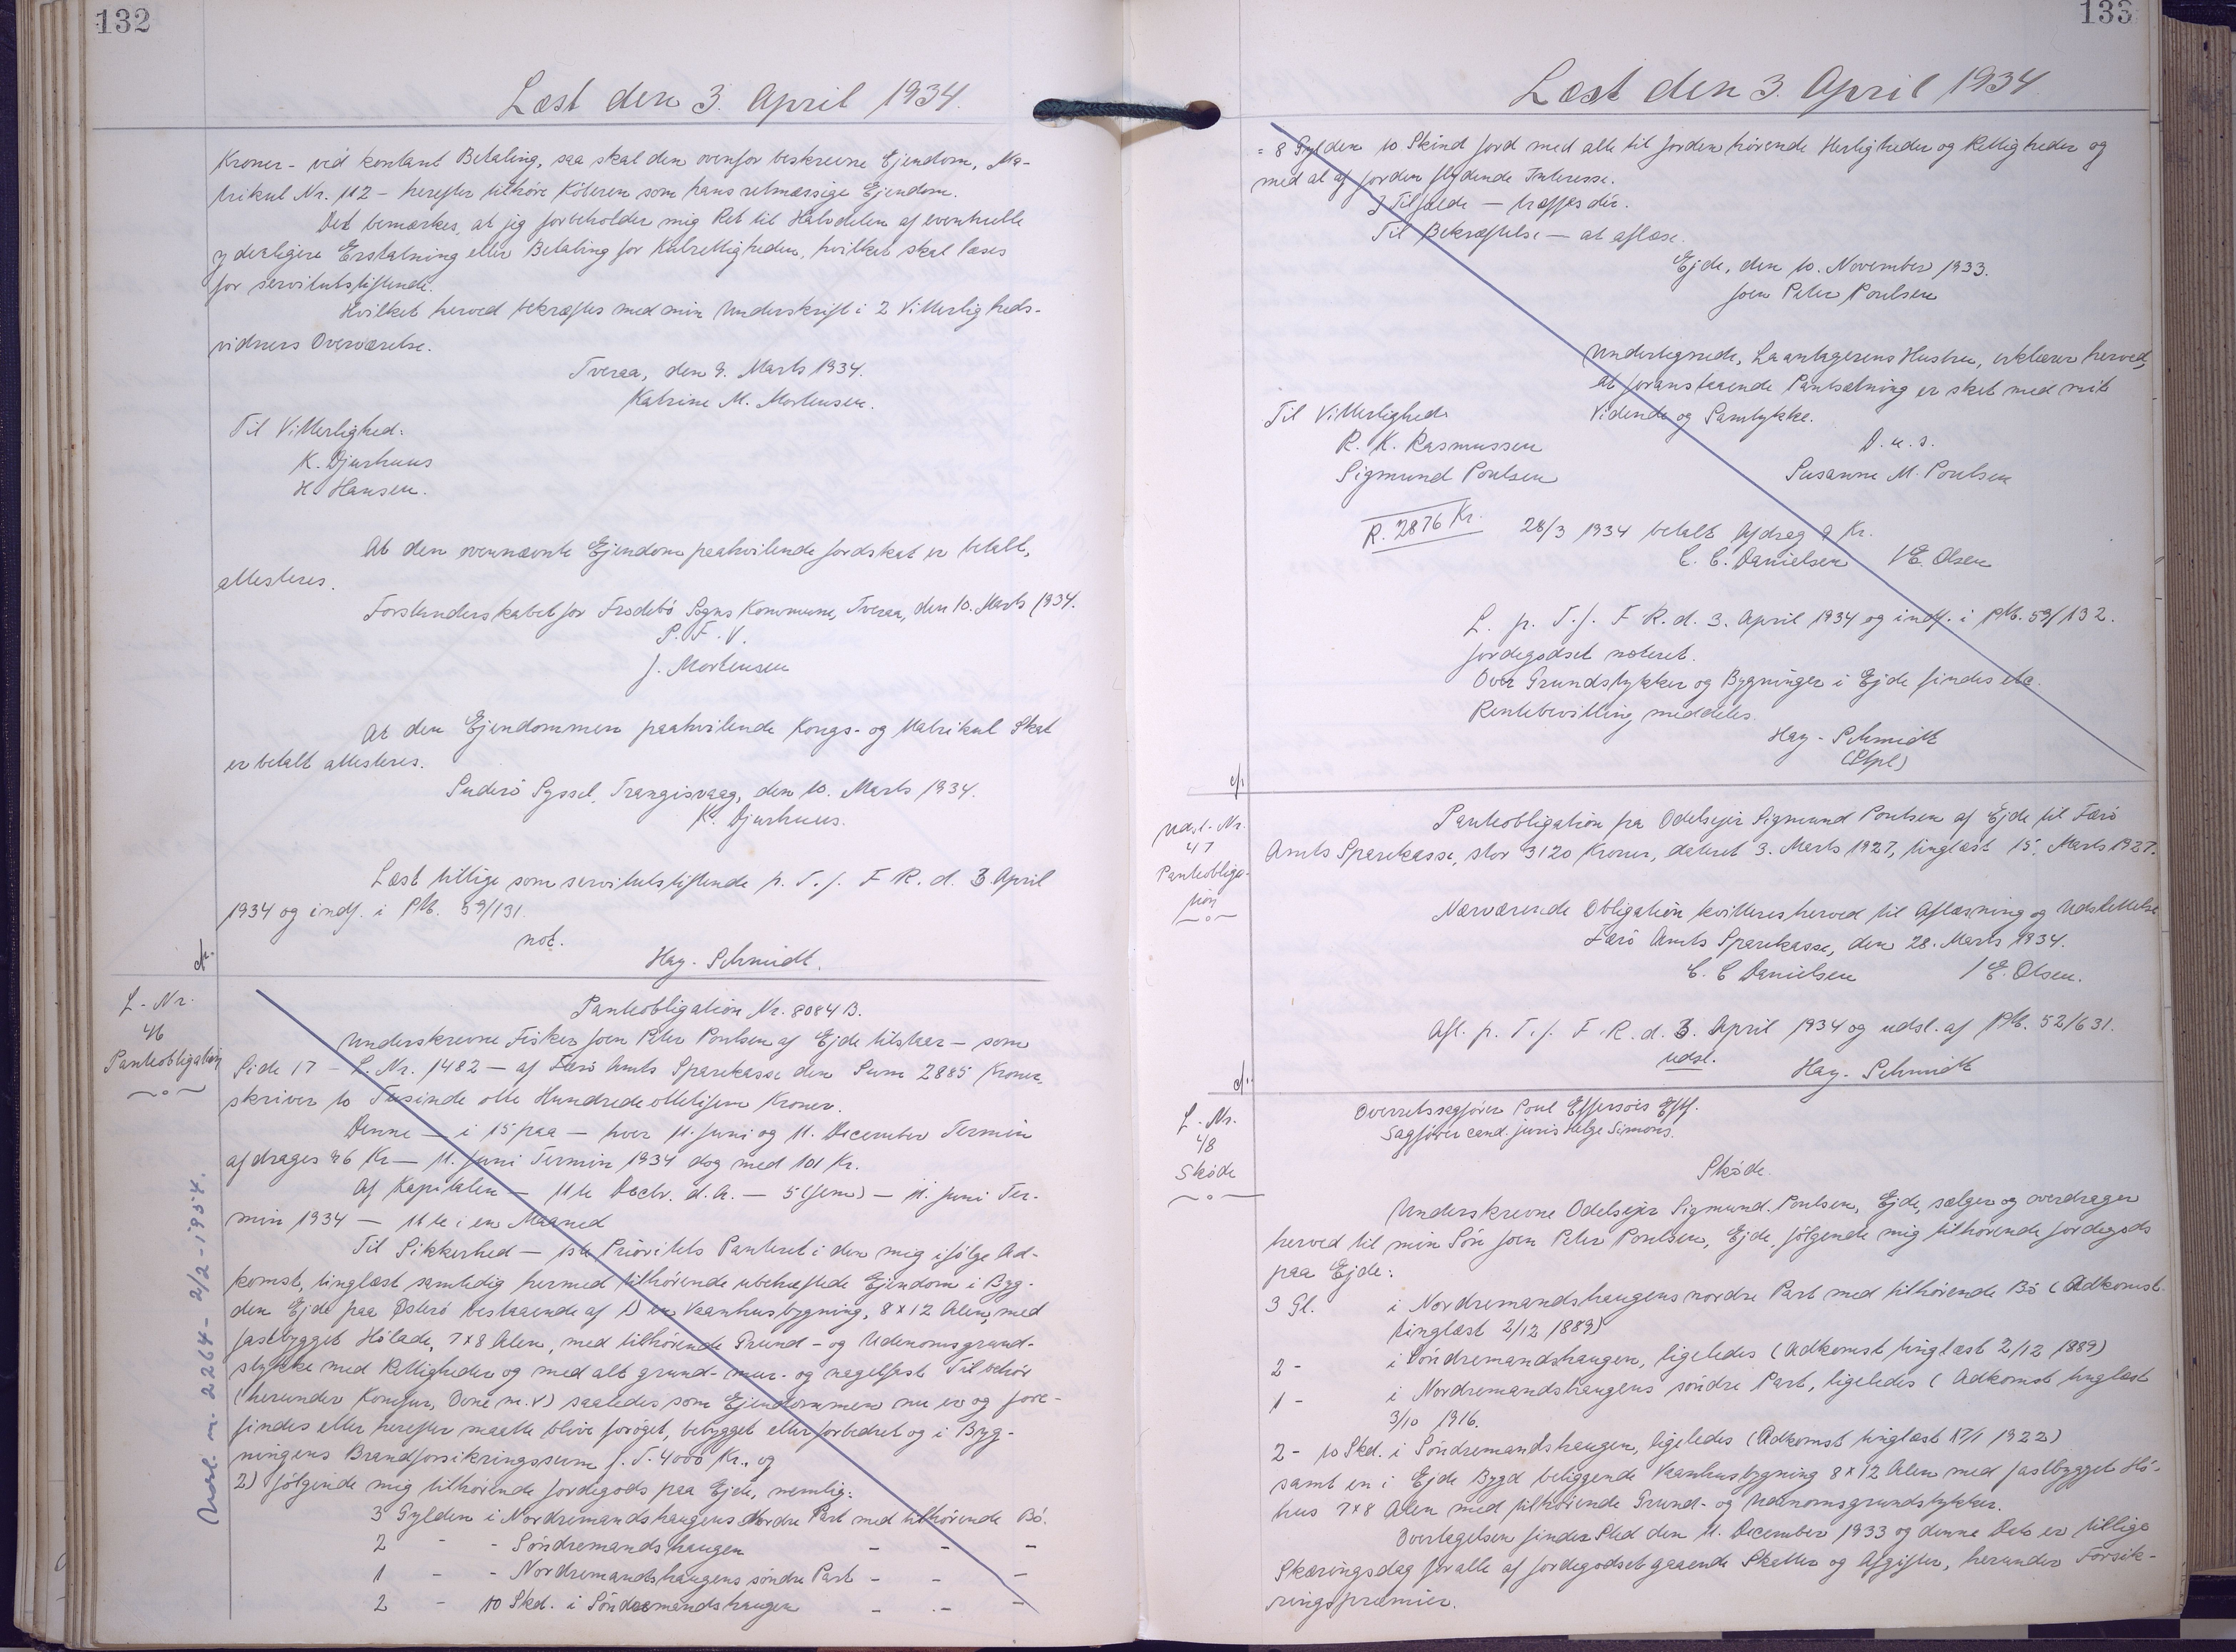 132
Læst den 3. April 1934.
Kroner - ved kontant Betaling, saa skal den ovenfor beskrevne Ejendom, Ma-
trikul Nr. 112 - herefter tilhöre Köberen som hans retmæssige Ejendom.
Det bemærkes, at jeg forbeholder mig Ret til Halvdelen af eventuelle
yderligere Erstatning eller Betaling for Kulrettigheden, hvilket skal læses
for servitutstiftende.
Hvilket herved bekræftes med min Underskrift i 2 Vitterligheds-
vidners Overværelse.
Tveraa, den 9. Marts 1934.
Katrine M. Mortensen.
Til Vitterlighed:
K. Djurhuus
H. Hansen.
At den ovennævnte Ejendom paahvilende Jordskat er betalt,
attesteres.
Forstanderskabet for Frodebö Sogns Kommune, Tveraa, den 10. Marts 1934.
P. F. V.
J. Mortensen
At den Ejendommen paahvilende Kongs- og Matrikul Skat
er betalt attesteres.
Suderö Syssel, Trangisvaag, den 10. Marts 1934.
K. Djurhuus.
Læst tillige som servitutstiftende p. T. f. F. R. d. 3. April
1934 og indf. i PM. 59/131.
not.
Hay-Schmidt.
cfr.
L-Nr.
46
Panteobligation
Panteobligation Nr. 8084 B.
Underskrevne Fisker Joen Peter Poulsen af Ejde tilstaar - som
Side 17 - L. Nr. 1482 - af Færö Amts Sparekasse den Sum 2885 Kroner,
skriver to Tusinde otte Hundrede ottetifem Kroner.
Denne - i 15 paa - hver 11. Juni og 11. December Termin
afdrages 96 Kr - 11. Juni Termin 1934 dog med 101 Kr.
Af Kapitalen - 11te Decbr. d. A. - 5 (fem) - 11. Juni Ter-
min 1934 - 11te i en Maaned
Til Sikkerhed - 1ste Prioritets Panteret i den mig ifölge Ad-
komst, tinglæst samtidig hermed tilhörende ubehæftede Ejendom i Byg-
den Ejde paa Österö bestaaende af 1) en Vaanhusbygning, 8 x 12 Alen, med
fastbygget Hölade, 7 x 8 Alen, med tilhörende Grund- og Udenomsgrund-
stykke med Rettigheder og med alt grund- mur- og nagelfast Tilbehör
(herunder Komfur, Ovne m.v) saaledes som Ejendommen nu er og fore-
findes eller herefter maatte blive foröget, bebygget eller forbedret og i Byg-
ningens Brandforsikringssum f. T. 4000 Kr., og
2) fölgende mig tilhörende Jordegods paa Ejde, nemlig:
3 Gylden i Nordremandshaugens Nordre Part med tilhörende Bö.
2 - - Söndremandshaugen - - -
1 - - Nordremandshaugens söndre Part - - -
2 - 10 Skd. i Söndremandshaugen - - -
Udsl. m. 2264 - 2/2 - 1954.
133
Læst den 3. April 1934
= 8 Gylden 10 Skind Jord med alle til Jorden hörende Herligheder og Rettigheder og
med al af Jorden flydende Interesse.
I Tilfælde - træffes dér.
Til Bekræftelse - at aflæse.
Ejde, den 10. November 1933.
Joen Peter Poulsen
Undertegnede, Laantagerens Hustru, erklærer herved,
at foranstaaende Pantsætning er sket med mit
Vidende og Samtykke.
Til Vitterlighed:
R. K. Rasmussen
Sigmund Poulsen
D. u. s.
Susanne M. Poulsen
R. 2876 Kr.
28/3 1934 betalt Afdrag 9 Kr.
C. C. Danielsen / E. Olsen
L. p. T. f. F. R. d. 3. April 1934 og indf. i PM. 59/132.
Jordegodset noteret.
Over Grundstykker og Bygninger i Ejde findes etc.
Rentebevilling meddeles.
Hay-Schmidt
(Stpl)
cfr.
Udsl.-Nr.
47
Panteobliga-
tion
Panteobligation fra Odelsejer Sigmund Poulsen af Ejde til Færö
Amts Sparekasse, stor 3120 Kroner, dateret 3. Marts 1927, tinglæst 15. Marts 1927.
Nærværende Obligation kvitteres herved til Aflæsning og Udslettelse
Færö Amts Sparekasse, den 28. Marts 1934.
C. C Danielsen / E. Olsen.
Afl. p. T. f. F. R. d. 3. April 1934 og udsl. af PM. 52/631.
udsl.
Hay-Schmidt
cfr.
L-Nr.
48
Sköde
Overretssagförer Poul Effersöes Eftf.
Sagförer cand. juris Helge Simons.
Sköde.
Underskrevne Odelsejer Sigmund Poulsen, Ejde, sælger og overdrager
herved til min Sön Joen Peter Poulsen, Ejde, fölgende mig tilhörende Jordegods
paa Ejde:
3 Gl. i Nordremandshaugens nordre Part med tilhörende Bö (Adkomst
tinglæst 2/12 1889)
2 - i Söndremandshaugen, ligeledes (Adkomst tinglæst 2/12 1889)
1 - i Nordremandshaugens söndre Part, ligeledes (Adkomst tinglæst
3/10 1916.
2 - 10 Skd. i Söndremandshaugen, ligeledes (Adkomst tinglæst 17/1 1922)
samt en i Ejde Bygd beliggende Vaanhusbygning 8 x 12 Alen med fastbygget Hö-
hus 7 x 8 Alen med tilhörende Grund- og Udenomsgrundstykker.
Overtagelsen finder Sted den 11. December 1933 og denne Dato er tillige
Skæringsdag for alle af Jordegodset gaaende Skatter og Afgifter, herunder Forsik-
ringspræmier.